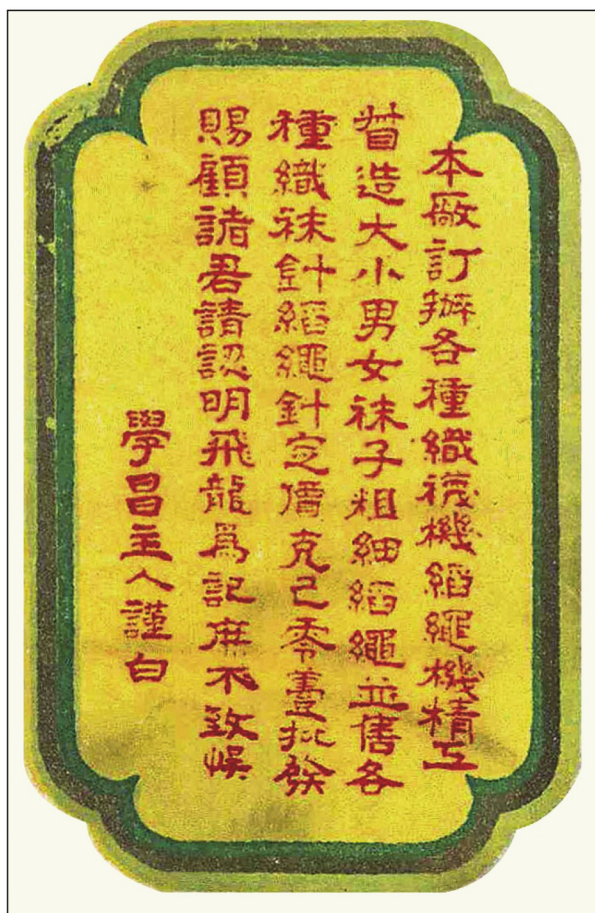 本厰訂辦各種織襪機縚繩機精工
督造大小男女袜子粗細縚繩並售各
種織袜針縚繩針定價克己零躉批發
賜顧諸君請認明飛龍爲記庶不致悞
學昌主人謹白